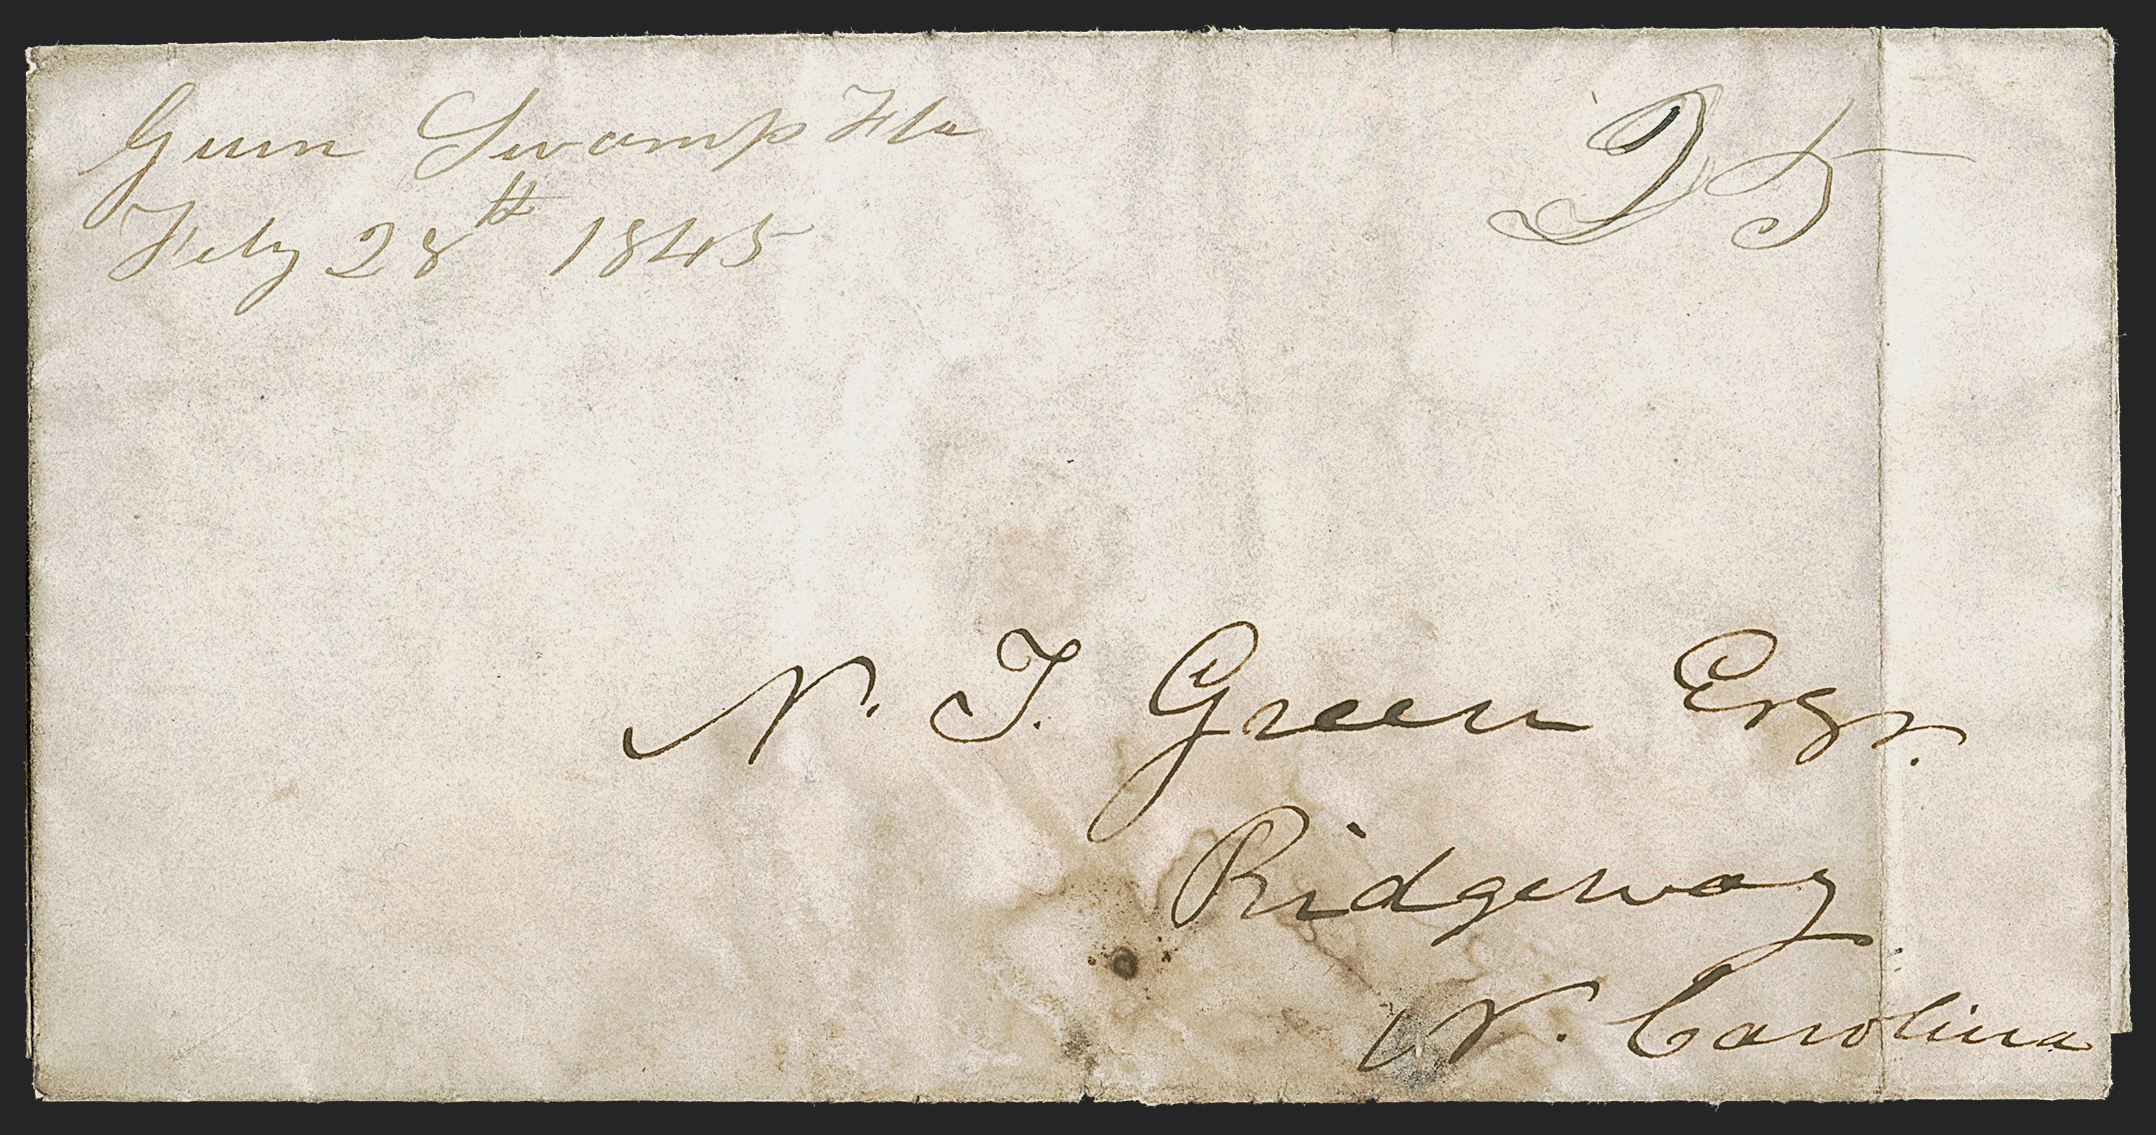 Gum Swamp Fla
25
Feby 28th 1845
N. T. Green Esqr.
Ridgeway
N. Carolina